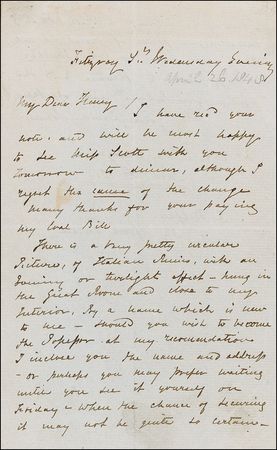 Fitzroy Sq Wednesday Evening
April 26 1848
My Dear Henry /
I have read your
note, and will be most happy
to see Miss Scott with you
tomorrow to dinner, although I
regret the cause of the change
many thanks for your paying
my Coal Bill
There is a very pretty circular
Picture, of Italian Ruins, with an
Evening or twilight effect – hung in
the Great Room and close to my
Interior, By a name which is new
to me – should you wish to become
the Possessor at my recommendation
I inclose you the name and address
– or perhaps you may prefer waiting
until you see it yourself on
Friday – when the chance of securing
it may not be quite so certain –